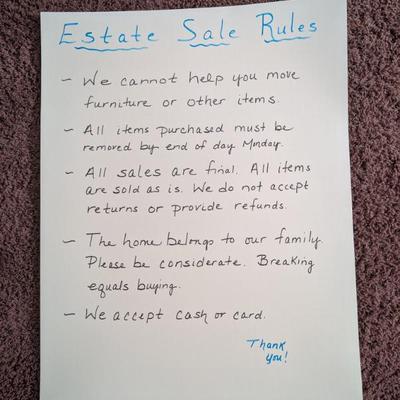 Estate Sale Rules
- We cannot help you move
furniture or other items.
- All items purchased must be
removed by end of day Monday.
- All sales are final. All items
are sold as is. We do not accept
returns or provide refunds.
- The home belongs to our family.
Please be considerate. Breaking
equals buying.
- We accept cash or card.
Thank
you!